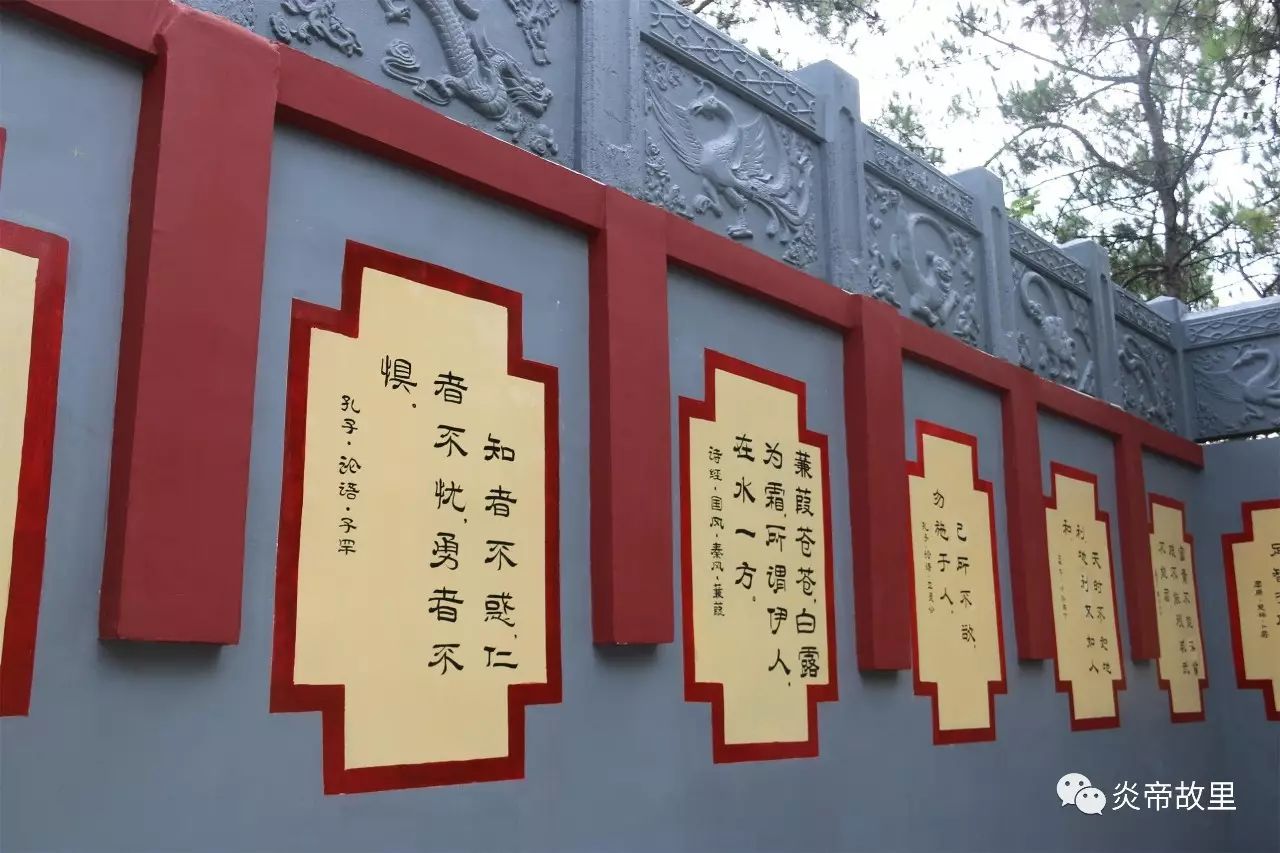 知者不惑，仁
者不忧，勇者不
惧。
孔子·论语·子罕
蒹葭苍苍，白露
为霜，所谓伊人，
在水一方。
诗经·国风·秦风·蒹葭
己所不欲，
勿施于人。
孔子·论语·卫灵公
天时不如地
利地利不如人
和
富贵不能淫贫
贱不能移威武
不能屈
屈原·楚辞·卜居
炎帝故里